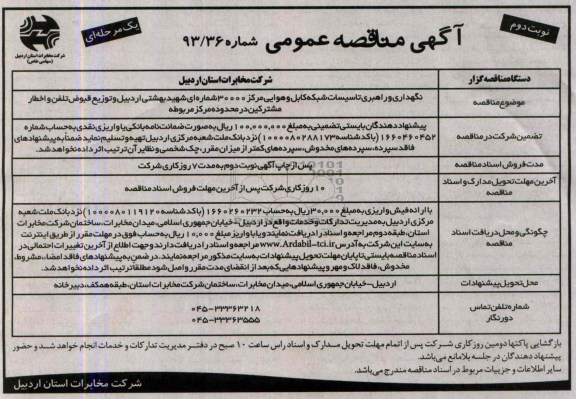 نوبت دوم
آگهی مناقصه عمومی شماره ۹۳/۳۶
یک مرحله‌ای
شرکت مخابرات استان اردبیل
(سهامی خاص)
دستگاه مناقصه گزار
شرکت مخابرات استان اردبیل
موضوع مناقصه
نگهداری و راهبری تاسیسات شبکه کابل و هوایی مرکز ۳۰۰۰۰ شماره‌ای شهید بهشتی اردبیل و توزیع قبوض تلفن و اخطار
مشترکین در محدوده مرکز مربوطه
تضمین شرکت در مناقصه
پیشنهاد دهندگان بایستی تضمینی به مبلغ ۱۰۰,۰۰۰,۰۰۰ ریال به صورت ضمانت نامه بانکی یا واریزی نقدی به حساب شماره
۱۶۶۰۴۶۰۴۵۲ (با کد شناسه ۱۰۰۰۰۰۸۰۲۸۸۱۷۳) نزد بانک ملت شعبه مرکزی اردبیل تهیه و تسلیم نماید ضمناً به پیشنهادهای
فاقد سپرده، سپرده‌های مخدوش، سپرده‌های کمتر از میزان مقرر، چک شخصی و نظایر آن ترتیب اثر داده نخواهد شد.
مدت فروش اسناد مناقصه
پس از چاپ آگهی نوبت دوم به مدت ۷ روز کاری شرکت
آخرین مهلت تحویل مدارک و اسناد
مناقصه
۱۰ روز کاری شرکت پس از آخرین مهلت فروش اسناد مناقصه
چگونگی و محل دریافت اسناد
مناقصه
با ارائه فیش واریزی به مبلغ ۳۰,۰۰۰ ریال به حساب ۱۶۶۰۲۶۰۲۳۲ (با کد شناسه ۱۰۰۰۰۸۰۱۱۹۱۲۰) نزد بانک ملت شعبه
مرکزی اردبیل به مدیریت تدارکات و خدمات واقع در اردبیل – خیابان جمهوری اسلامی، میدان مخابرات، ساختمان شرکت مخابرات
استان، طبقه دوم مراجعه و اسناد را دریافت نمایند و یا با واریز مبلغ ۱۰,۰۰۰ ریال به حساب فوق در مهلت مقرر از طریق اینترنت
به سایت این شرکت به آدرس www.Ardabil-tci.ir مراجعه و اسناد را دریافت دارند و جهت اطلاع از آخرین تغییرات احتمالی در
اسناد مناقصه بایستی تا پایان مهلت تحویل پیشنهادات به سایت مذکور مراجعه نمایند. در ضمن به پیشنهادهای فاقد امضا، مشروط،
مخدوش، فاقد لاک و مهر و پیشنهادهایی که بعد از انقضای مدت مقرر واصل شود مطلقا ترتیب اثر داده نخواهد شد.
محل تحویل پیشنهادات
اردبیل – خیابان جمهوری اسلامی، میدان مخابرات، ساختمان شرکت مخابرات استان، طبقه همکف، دبیرخانه
شماره تلفن تماس
۰۴۵-۳۳۳۶۳۲۱۸
دورنگار
۰۴۵-۳۳۳۶۳۵۵۵
بازگشایی پاکتها دومین روز کاری شرکت پس از اتمام مهلت تحویل مدارک و اسناد راس ساعت ۱۰ صبح در دفتر مدیریت تدارکات و خدمات انجام خواهد شد و حضور
پیشنهاد دهندگان در جلسه بلامانع می‌باشد.
سایر اطلاعات و جزییات مربوط در اسناد مناقصه مندرج می‌باشد.
شرکت مخابرات استان اردبیل